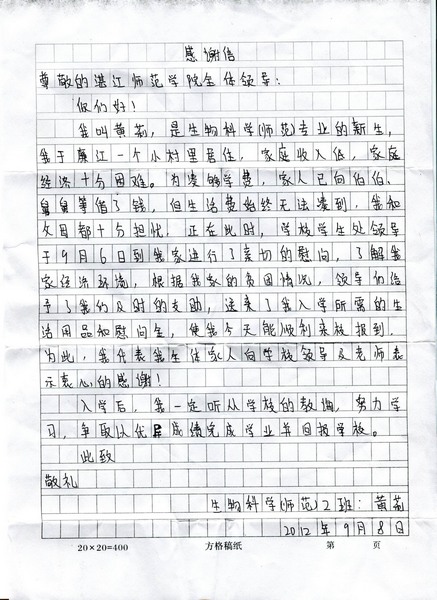 感谢信
尊敬的湛江师范学院全体领导：
你们好！
我叫黄莉，是生物科学(师范)专业的新生，
我于廉江一个小村里居住，家庭收入低，家庭
经济十分困难。为凑够学费，家人已向伯伯、
舅舅等借了钱，但生活费始终无法凑到，我和
父母都十分担忧。正在此时，学校学生处领导
于9月6日到我家进行了亲切的慰问，了解我
家经济环境，根据我家的贫困情况，领导们给
予了我们及时的支助，送来了我入学所需的生
活用品和慰问金，使我今天能顺利来校报到，
为此，我代表我全体家人向学校领导及老师表
示衷心的感谢！
入学后，我一定听从学校的教诲，努力学
习，争取以优异成绩完成学业并回报学校。
此致
敬礼
生物科学(师范)2班：黄莉
2012年9月8日
20×20=400 方格稿纸 第 页